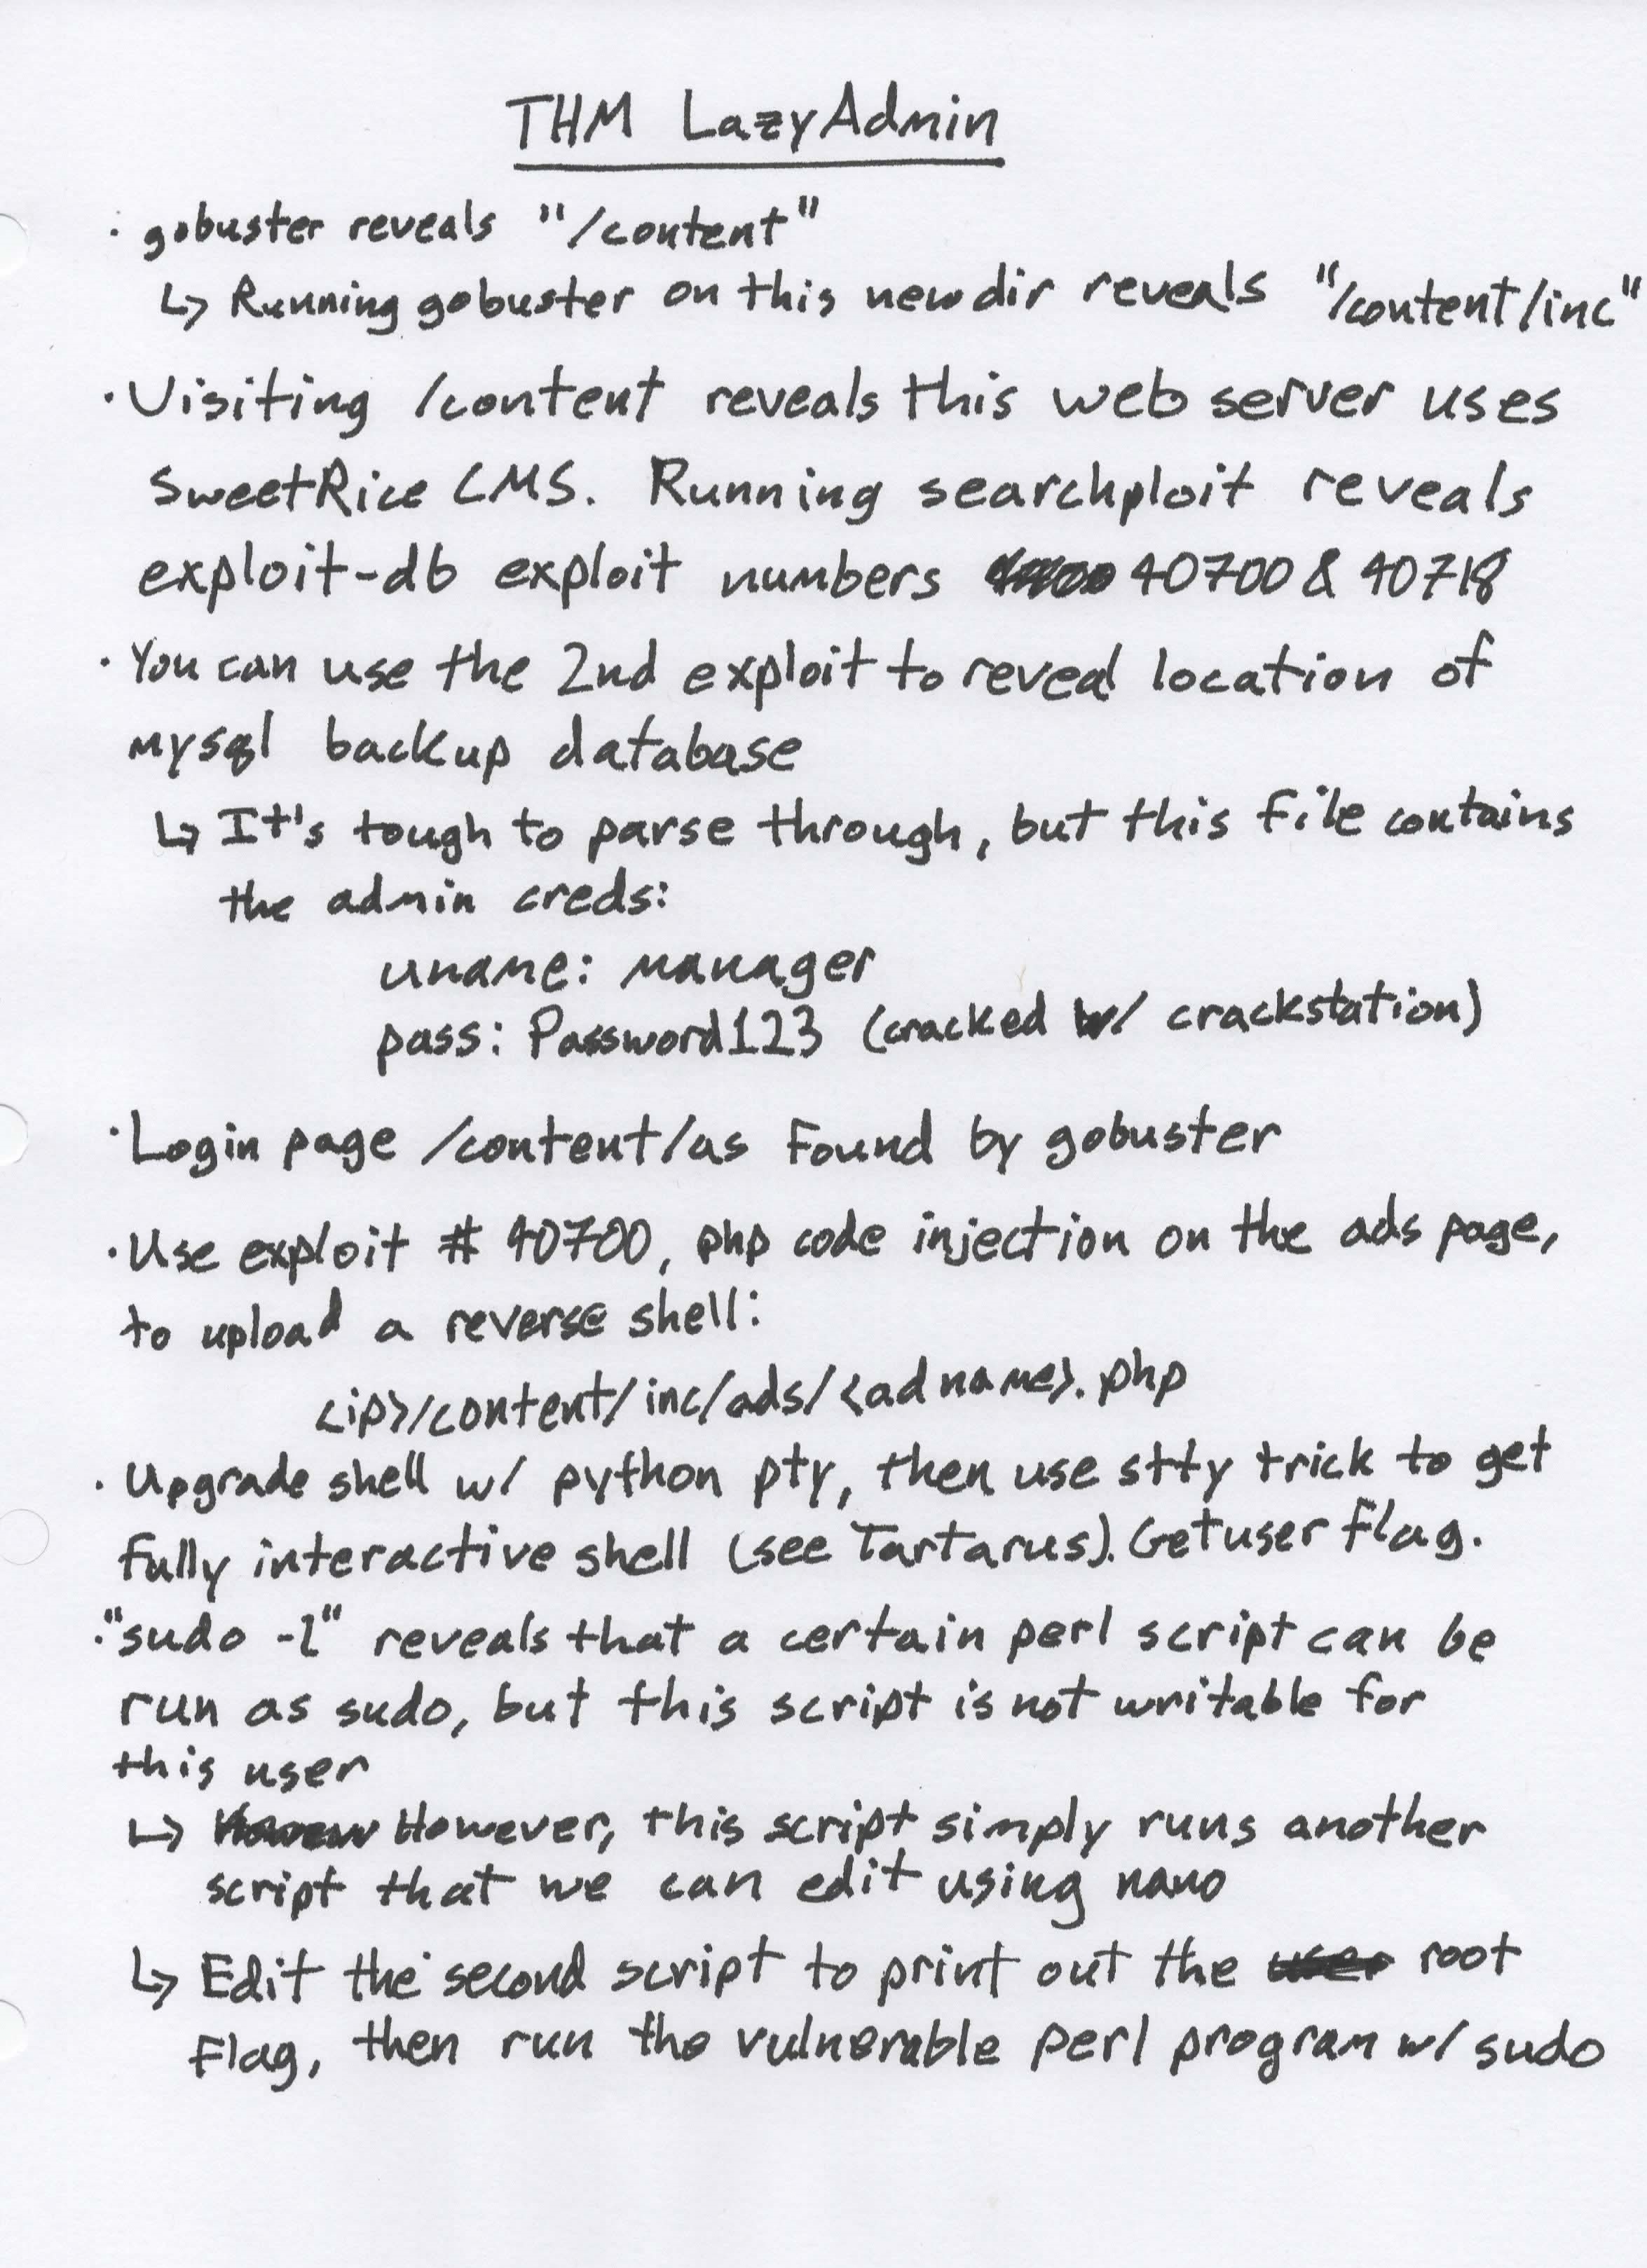 THM LazyAdmin
· gobuster reveals "/content"
↳ Running gobuster on this new dir reveals "/content/inc"
· Visiting /content reveals this web server uses
SweetRice CMS. Running searchploit reveals
exploit-db exploit numbers 40700 & 40718
· You can use the 2nd exploit to reveal location of
mysql backup database
↳ It's tough to parse through, but this file contains
the admin creds:
uname: manager
pass: Password123 (cracked w/ crackstation)
· Login page /content/as found by gobuster
· Use exploit # 40700, php code injection on the ads page,
to upload a reverse shell:
<ip>/content/inc/ads/<ad name>.php
· Upgrade shell w/ python pty, then use stty trick to get
fully interactive shell (see Tartarus). Get user flag.
· "sudo -l" reveals that a certain perl script can be
run as sudo, but this script is not writable for
this user
↳ However, this script simply runs another
script that we can edit using nano
↳ Edit the second script to print out the user root
flag, then run the vulnerable perl program w/ sudo